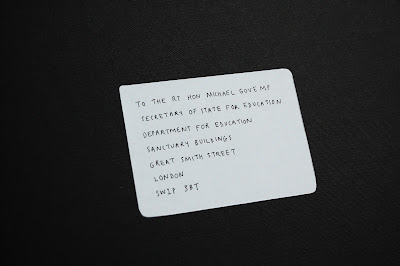 TO THE RT HON MICHAEL GOVE MP
SECRETARY OF STATE FOR EDUCATION
DEPARTMENT FOR EDUCATION
SANCTUARY BUILDINGS
GREAT SMITH STREET
LONDON
SW1P 3BT